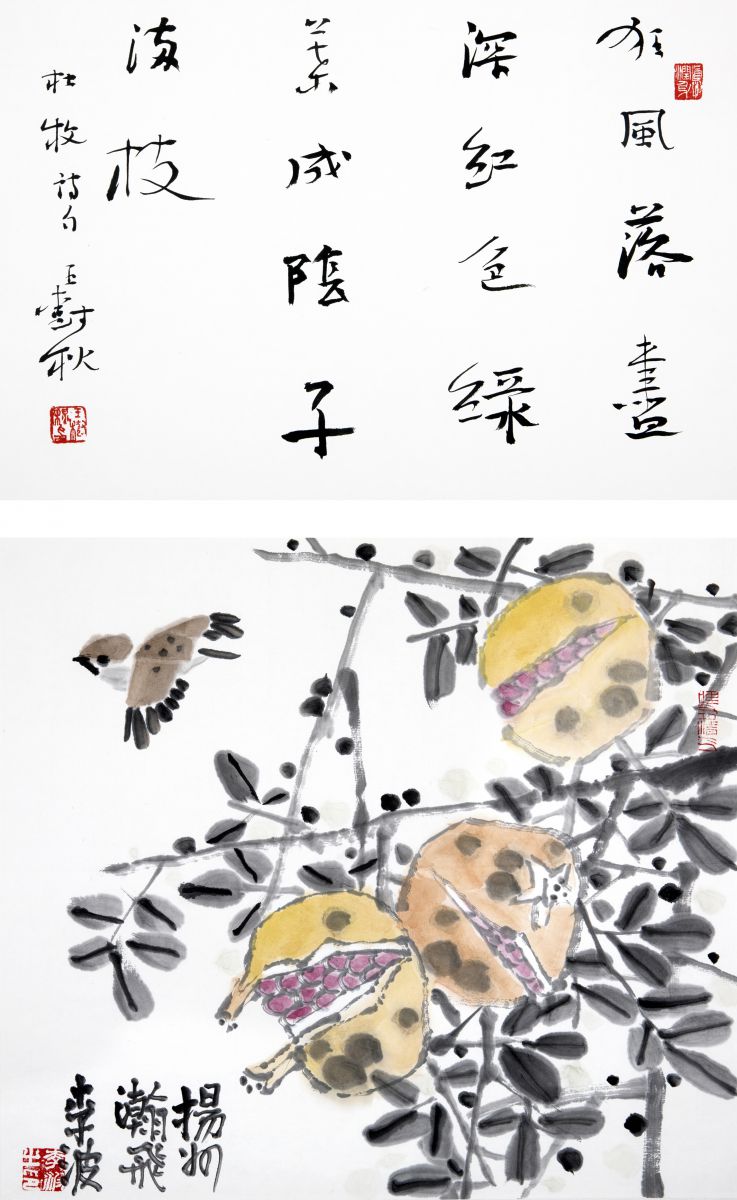 狂風落盡
深紅色綠
葉成陰子
滿枝
杜牧詩句 王樹秋
揚州
瀚飛
李波